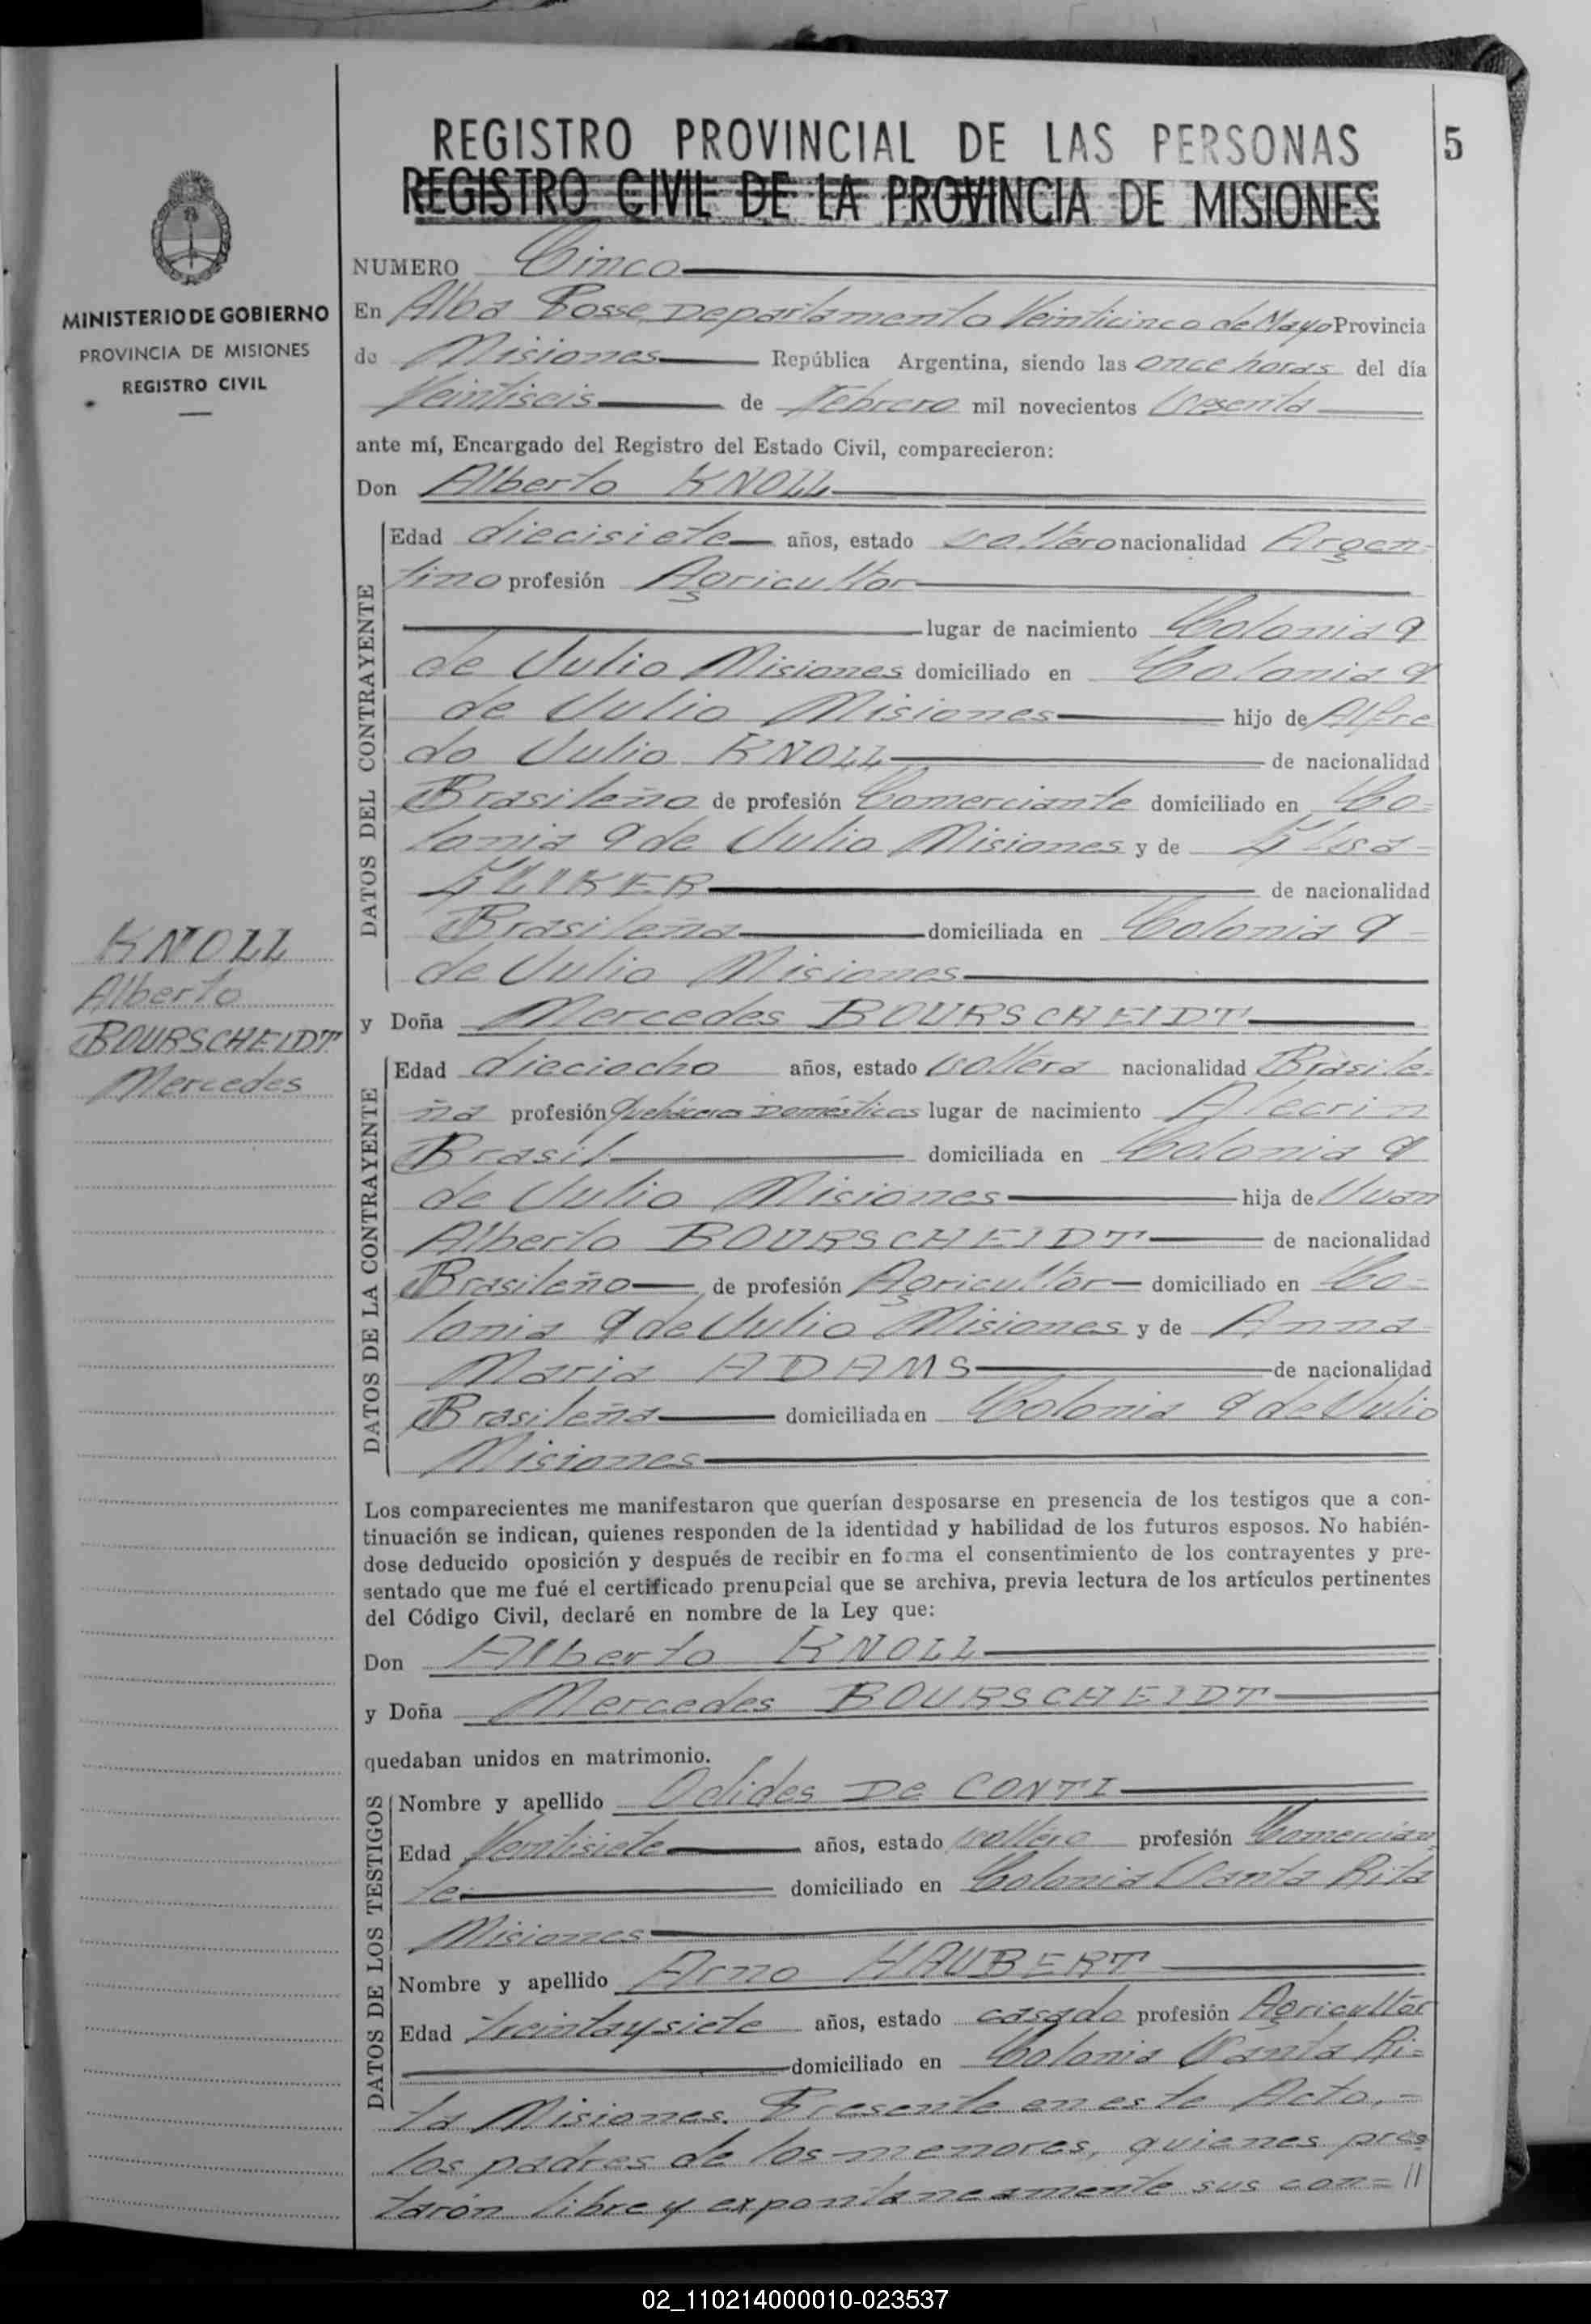 REGISTRO PROVINCIAL DE LAS PERSONAS
5
REGISTRO CIVIL DE LA PROVINCIA DE MISIONES
MINISTERIO DE GOBIERNO
PROVINCIA DE MISIONES
REGISTRO CIVIL
NUMERO Cinco
En Alba Posse Departamento Veinticinco de Mayo Provincia
de Misiones República Argentina, siendo las once horas del día
Veintiseis de Febrero mil novecientos Sesenta
ante mí, Encargado del Registro del Estado Civil, comparecieron:
Don Alberto KNOLL
DATOS DEL CONTRAYENTE
Edad diecisiete años, estado soltero nacionalidad Argen-
tino profesión Agricultor
lugar de nacimiento Colonia 9
de Julio Misiones domiciliado en Colonia 9
de Julio Misiones hijo de Alfre
do Julio KNOLL de nacionalidad
Brasileño de profesión Comerciante domiciliado en Co-
lonia 9 de Julio Misiones y de
de nacionalidad
Brasileña domiciliada en Colonia 9
de Julio Misiones
KNOLL
Alberto
BOURSCHEIDT
Mercedes
y Doña Mercedes BOURSCHEIDT
DATOS DE LA CONTRAYENTE
Edad dieciocho años, estado soltera nacionalidad Brasile-
ña profesión Quehaceres Domésticos lugar de nacimiento Alecrin
Brasil domiciliada en Colonia 9
de Julio Misiones hija de Juan
Alberto BOURSCHEIDT de nacionalidad
Brasileño de profesión Agricultor domiciliado en Co-
lonia 9 de Julio Misiones y de Anna
Maria ADAMS de nacionalidad
Brasileña domiciliada en Colonia 9 de Julio
Misiones
Los comparecientes me manifestaron que querían desposarse en presencia de los testigos que a con-
tinuación se indican, quienes responden de la identidad y habilidad de los futuros esposos. No habién-
dose deducido oposición y después de recibir en forma el consentimiento de los contrayentes y pre-
sentado que me fué el certificado prenupcial que se archiva, previa lectura de los artículos pertinentes
del Código Civil, declaré en nombre de la Ley que:
Don Alberto KNOLL
y Doña Mercedes BOURSCHEIDT
quedaban unidos en matrimonio.
DATOS DE LOS TESTIGOS
Nombre y apellido Oclides De CONTI
Edad Ventisiete años, estado soltero profesión Comercian
te domiciliado en Colonia Santa Rita
Misiones
Nombre y apellido Arno HAUBERT
Edad treintaysiete años, estado casado profesión Agricultor
domiciliado en Colonia Santa Ri=
ta Misiones. Presente en este Acto,=
los padres de los menores, quienes pres
tarón libre y expontaneamente sus con=//
02_110214000010-023537